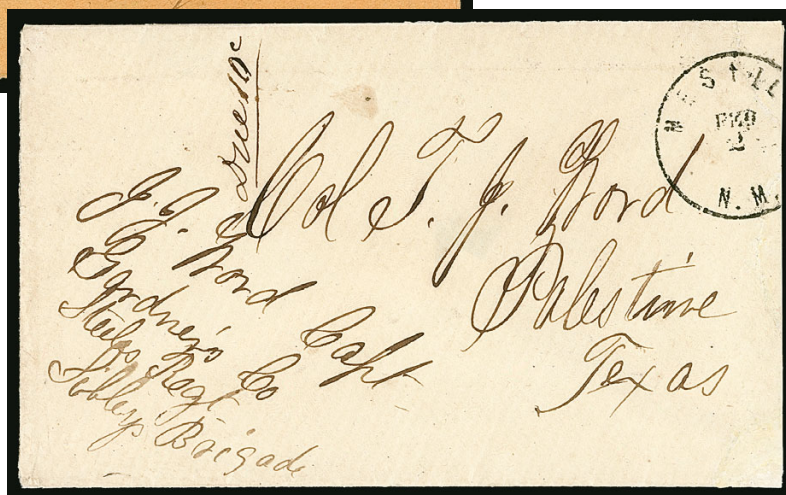 due 10c
MESILL
FEB
2
N.M.
Col T. J. Word
Palestine
Texas
J. J. Word Capt
Gardner's Co
Steels Regt
Sibleys Brigade